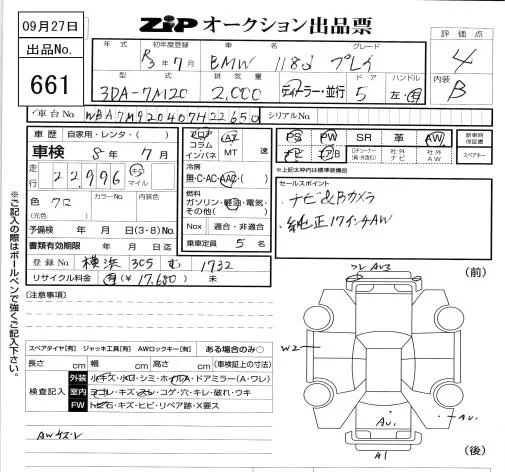 09月27日
出品No.
661
ZIP オークション出品票
評価点
4
内装
B
年式 初年度登録 車名 グレード
R3年7月 BMW 118d プレイ
型式 排気量 ドア ハンドル
3DA-7M20 2,000 ディーラー・並行 5 左・右
車台No. WBA7M920407H22650 シリアルNo.
車歴 自家用・レンタ・( )
車検 8年 7月
走行 22,996 キロ マイル
色 クロ (元色) カラーNo. 内装色
予備検 年 月 日(3・8)No.
書類有効期限 年 月 日迄
登録No. 横浜 305 む 1732
リサイクル料金 有(¥17,680) 未
フロア コラム インパネ AT MT 速
冷房
無・C・AC・AAC・( )
燃料
ガソリン・軽油・電気・その他( )
Nox 適合・非適合
乗車定員 5 名
PS PW SR 革 AW
ナビ エアB Dチューナー(純・外含む) 社外ナビ 社外AW
新車時保証書
スペアキー
※上記太枠内は標準装備品
セールスポイント
・ナビ&Bカメラ
・純正17インチAW
※ご記入の際はボールペンで強くご記入下さい。
[注意事項]
スペアタイヤ[有] ジャッキ工具[有] AWロックキー[有] ある場合のみ○
長さ cm 幅 cm 高さ cm (車検証上の寸法)
検査記入
外装 小キズ・小凹・シミ・ホイールA・ドアミラー(A・ワレ)
室内 ヨゴレ・キズ・スレ・コゲ・穴・キレ・破れ・ウキ
FW トビ石・キズ・ヒビ・リペア跡・X要ス
AWキズ・レ
(前)
W2
A1
(後)